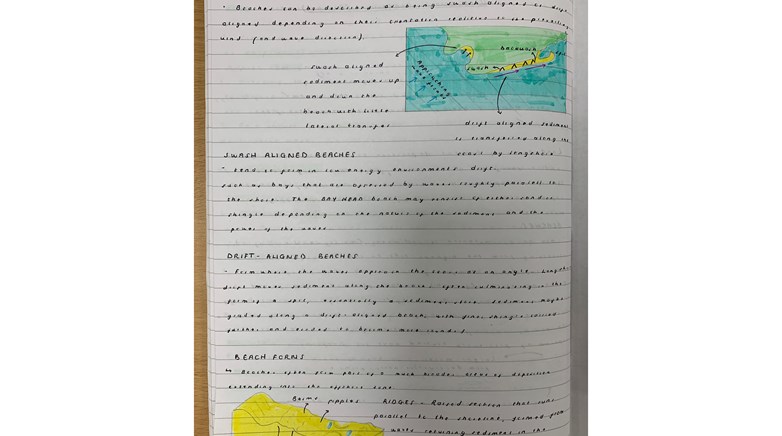 • Beaches can be described as being swash aligned or drift
aligned depending on their orientation relative to the prevailing
wind (and wave direction).
backwash
spit
swash
approaching
swash aligned
sediment moves up
and down the
beach with little
lateral transfer
drift aligned sediment
is transferring along the
coast by longshore
drift.
SWASH ALIGNED BEACHES
- Tend to form in low energy environments
such as bays that are affected by waves roughly parallel to
the shore. The BAY HEAD beach may consist of either sand or
shingle depending on the nature of the sediment and the
power of the waves.
DRIFT-ALIGNED BEACHES
- Form where the waves approach the coast at an angle. Longshore
drift moves sediment along the beach, often culminating in the
form of a spit, essentially a sediment store. Sediment maybe
graded along a drift-aligned beach, with finer shingle carried
further and eroded to become more rounded.
BEACH FORMS
↳ Beaches often form part of a much broader zone of deposition
extending into the offshore zone
Berms ripples
RIDGES - Raised section that runs
parallel to the shoreline, formed from
waves reworking sediment in the